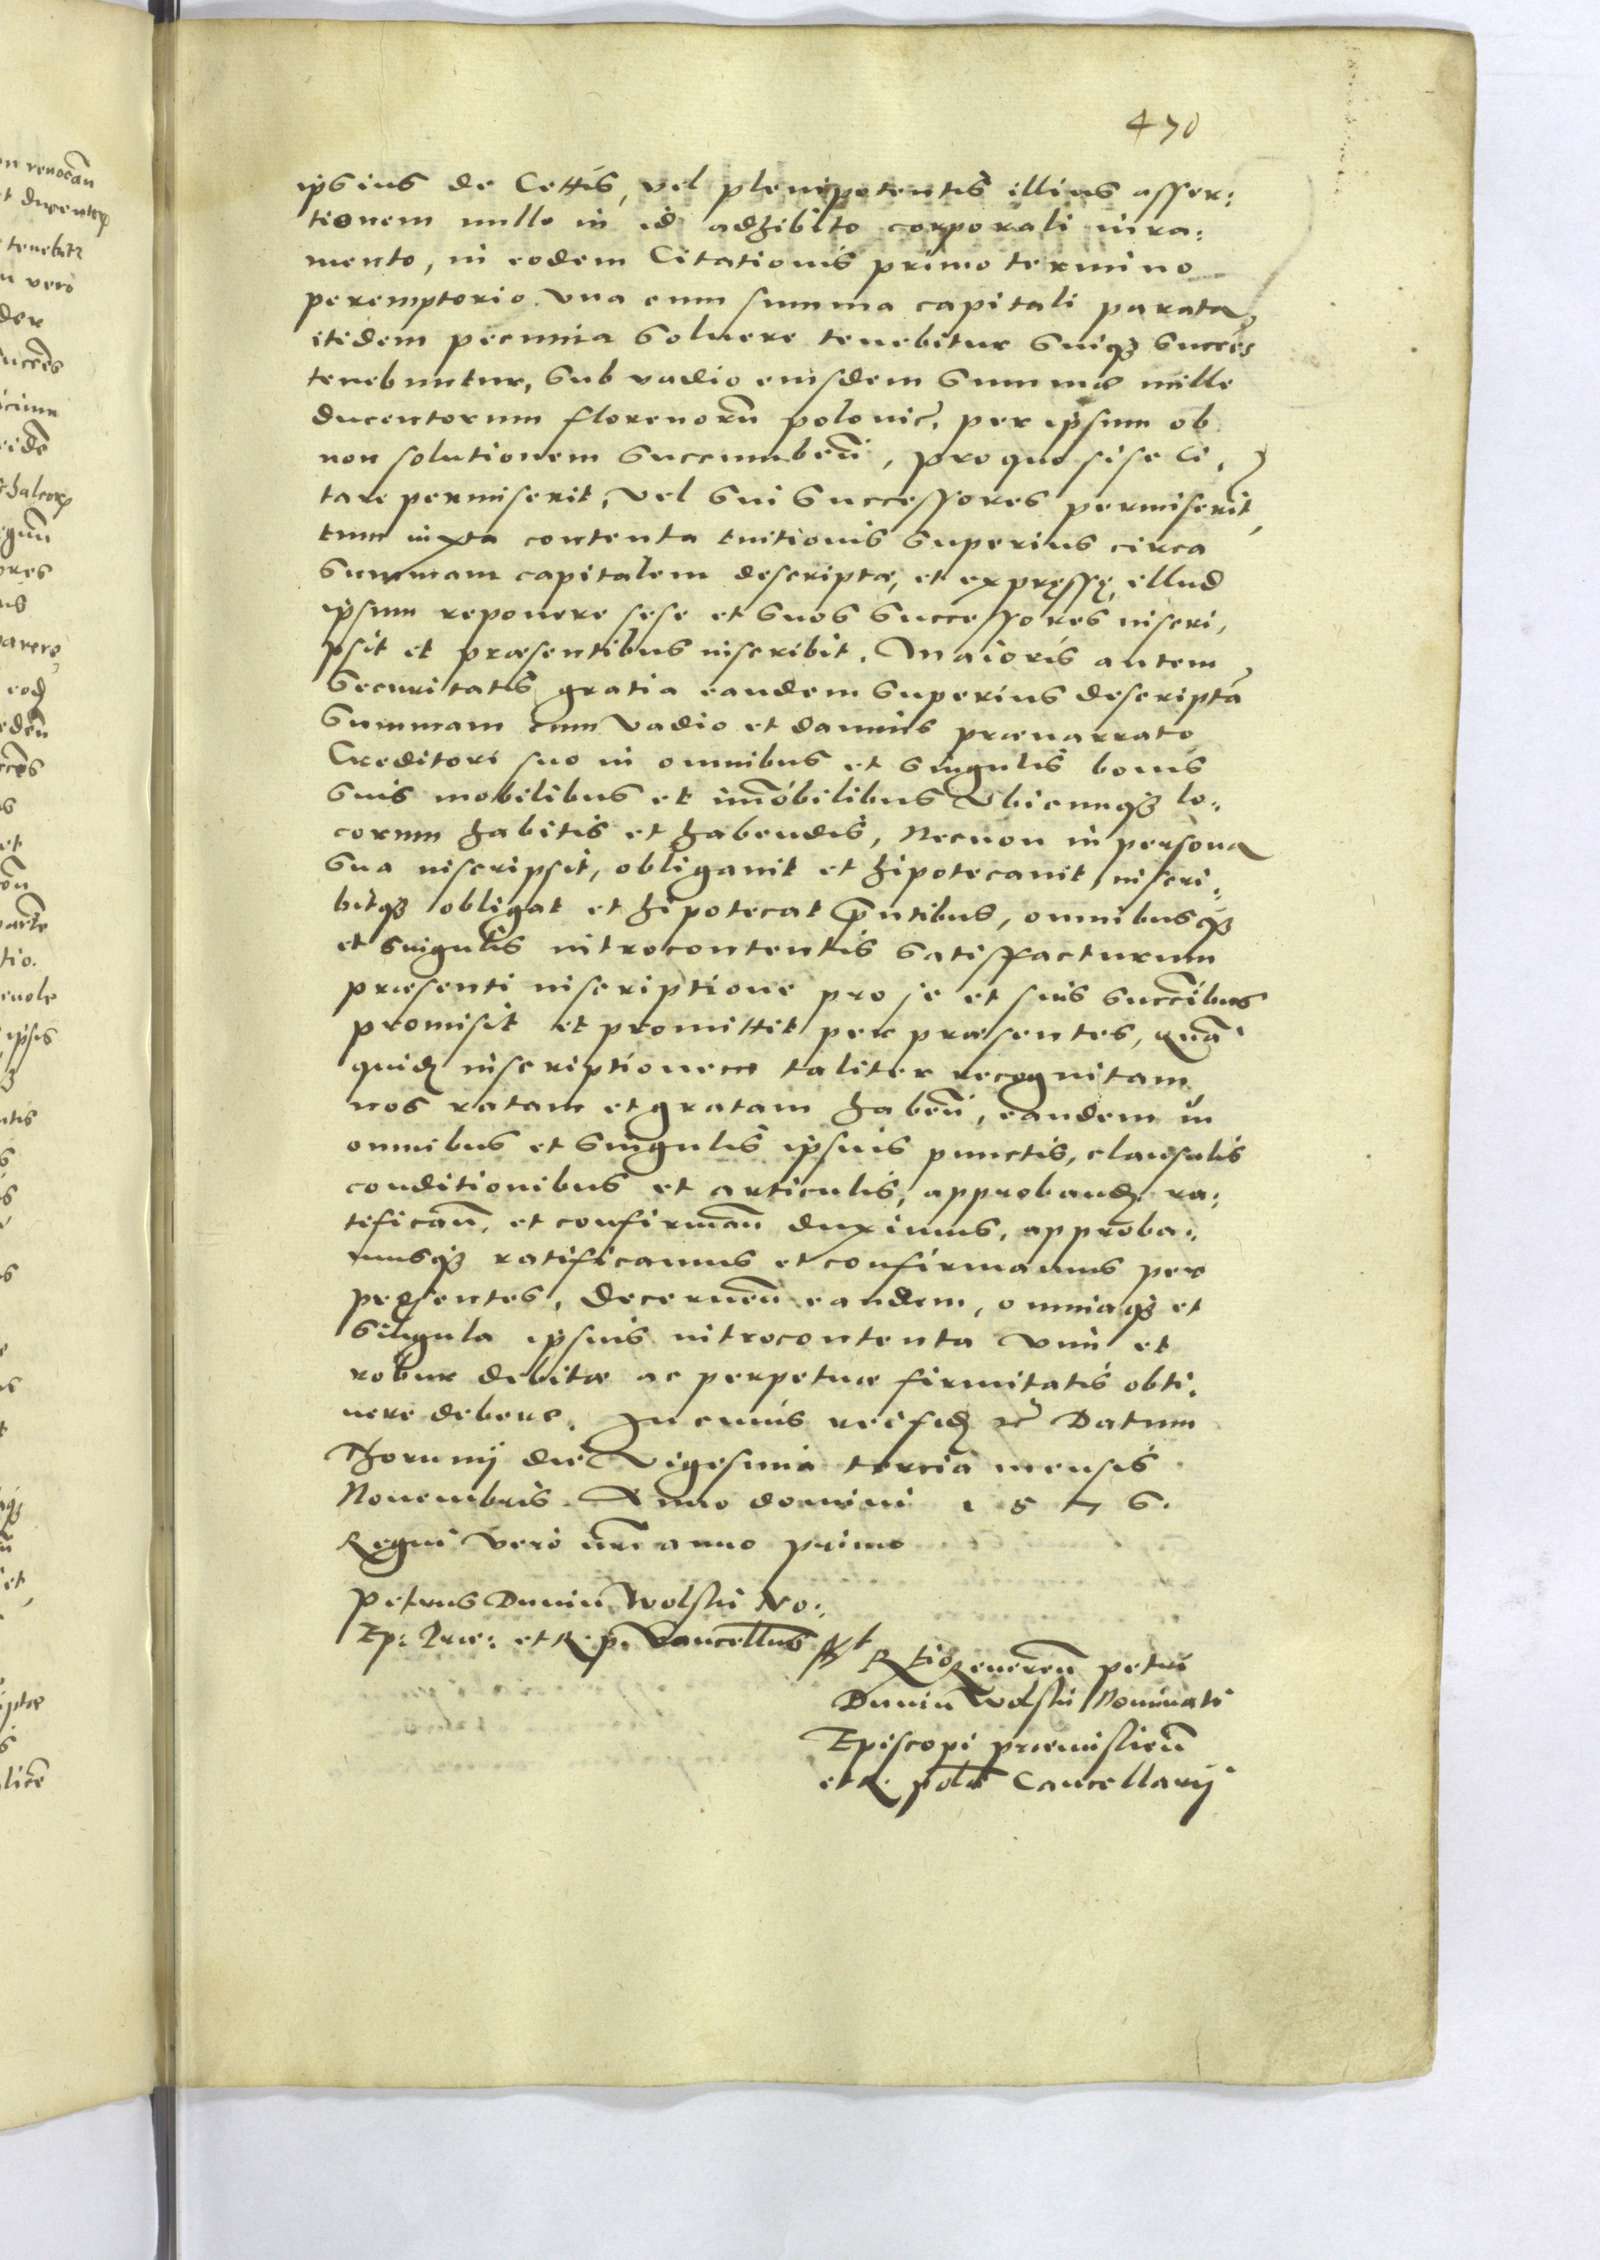 470
ipsius de Cettis, vel plenipotentis illius asser:
tionem nullo in id adhibito corporali iura:
mento, in eodem Citationis primo termino
peremptorio vna cum summa capitali parata
itidem pecunia soluere tenebitur suiqȝ succes
tenebuntur, sub vadio eiusdem summæ mille
ducentorum florenorū polonic̄. per ipsum ob
non solutionem succumbeñ, pro quo si se ci,
tare permiserit, vel sui successores permiserit,
tum iuxta contenta tuitionis superius circa
summam capitalem descriptæ, et expręssę, illud
ipsum reponere sese et suos successores inscri,
psit et præsentibus inscribit. Maioris autem
securitatis gratia eandem superius descriptā
summam cum vadio et damnis prænarrato
Creditori suo in omnibus et singulis bonis
suis mobilibus et im̄obilibus vbicunqȝ lo:
corum habitis et habendis, Necnon in persona
sua inscripsit, obligauit et hipotecauit, inscri:
bitqȝ obligat et hipotecat p̄ntibus, omnibusqȝ
et singulis introcontentis satisffacturum
præsenti inscriptione pro se et suis succ̄ibus
promisit et promittit per præsentes, Quā
quid inscriptionem taliter recognitam
nos ratam et gratam habeñ, eandem in
omnibus et singulis ipsius punctis, clausulis
conditionibus et articulis, approband ra:
tificañ, et confirmañ duximus, approba:
musqȝ ratificamus et confirmamus per
præsentes, Decerneñ eandem, omniaqȝ et
singula ipsius introcontenta vim et
robur debitæ ac perpetuæ firmitatis obti,
nere debere. In cuius rei fid etc̄ Datum
Thorunij die Vigesima tercia mensis
Nouembris. Anno domini 1576.
Regni vero nr̄i anno primo
Petrus Dunin Wolski No:
Ep: Præ: et R. p. Vancellus sst
Rtio Reuereñ Petri
Dunin Wolski Nominati
Episcopi præmislieñ
et R. polæ Cancellarij